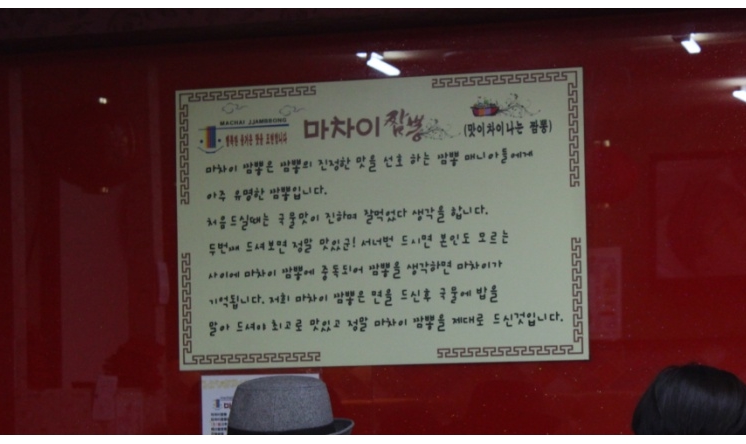 MACHAI JJAMBBONG
마차이 짬뽕
(맛이차이나는 짬뽕)
마차이 짬뽕은 짬뽕의 진정한 맛을 선호 하는 짬뽕 매니아들에게
아주 유명한 짬뽕입니다.
처음드실때는 국물맛이 진하며 잘먹었다 생각을 합니다.
두번째 드셔보면 정말 맛있군! 서너번 드시면 본인도 모르는
사이에 마차이 짬뽕에 중독되어 짬뽕을 생각하면 마차이가
기억됩니다. 저희 마차이 짬뽕은 면을 드신후 국물에 밥을
말아 드셔야 최고로 맛있고 정말 마차이 짬뽕을 제대로 드신것입니다.